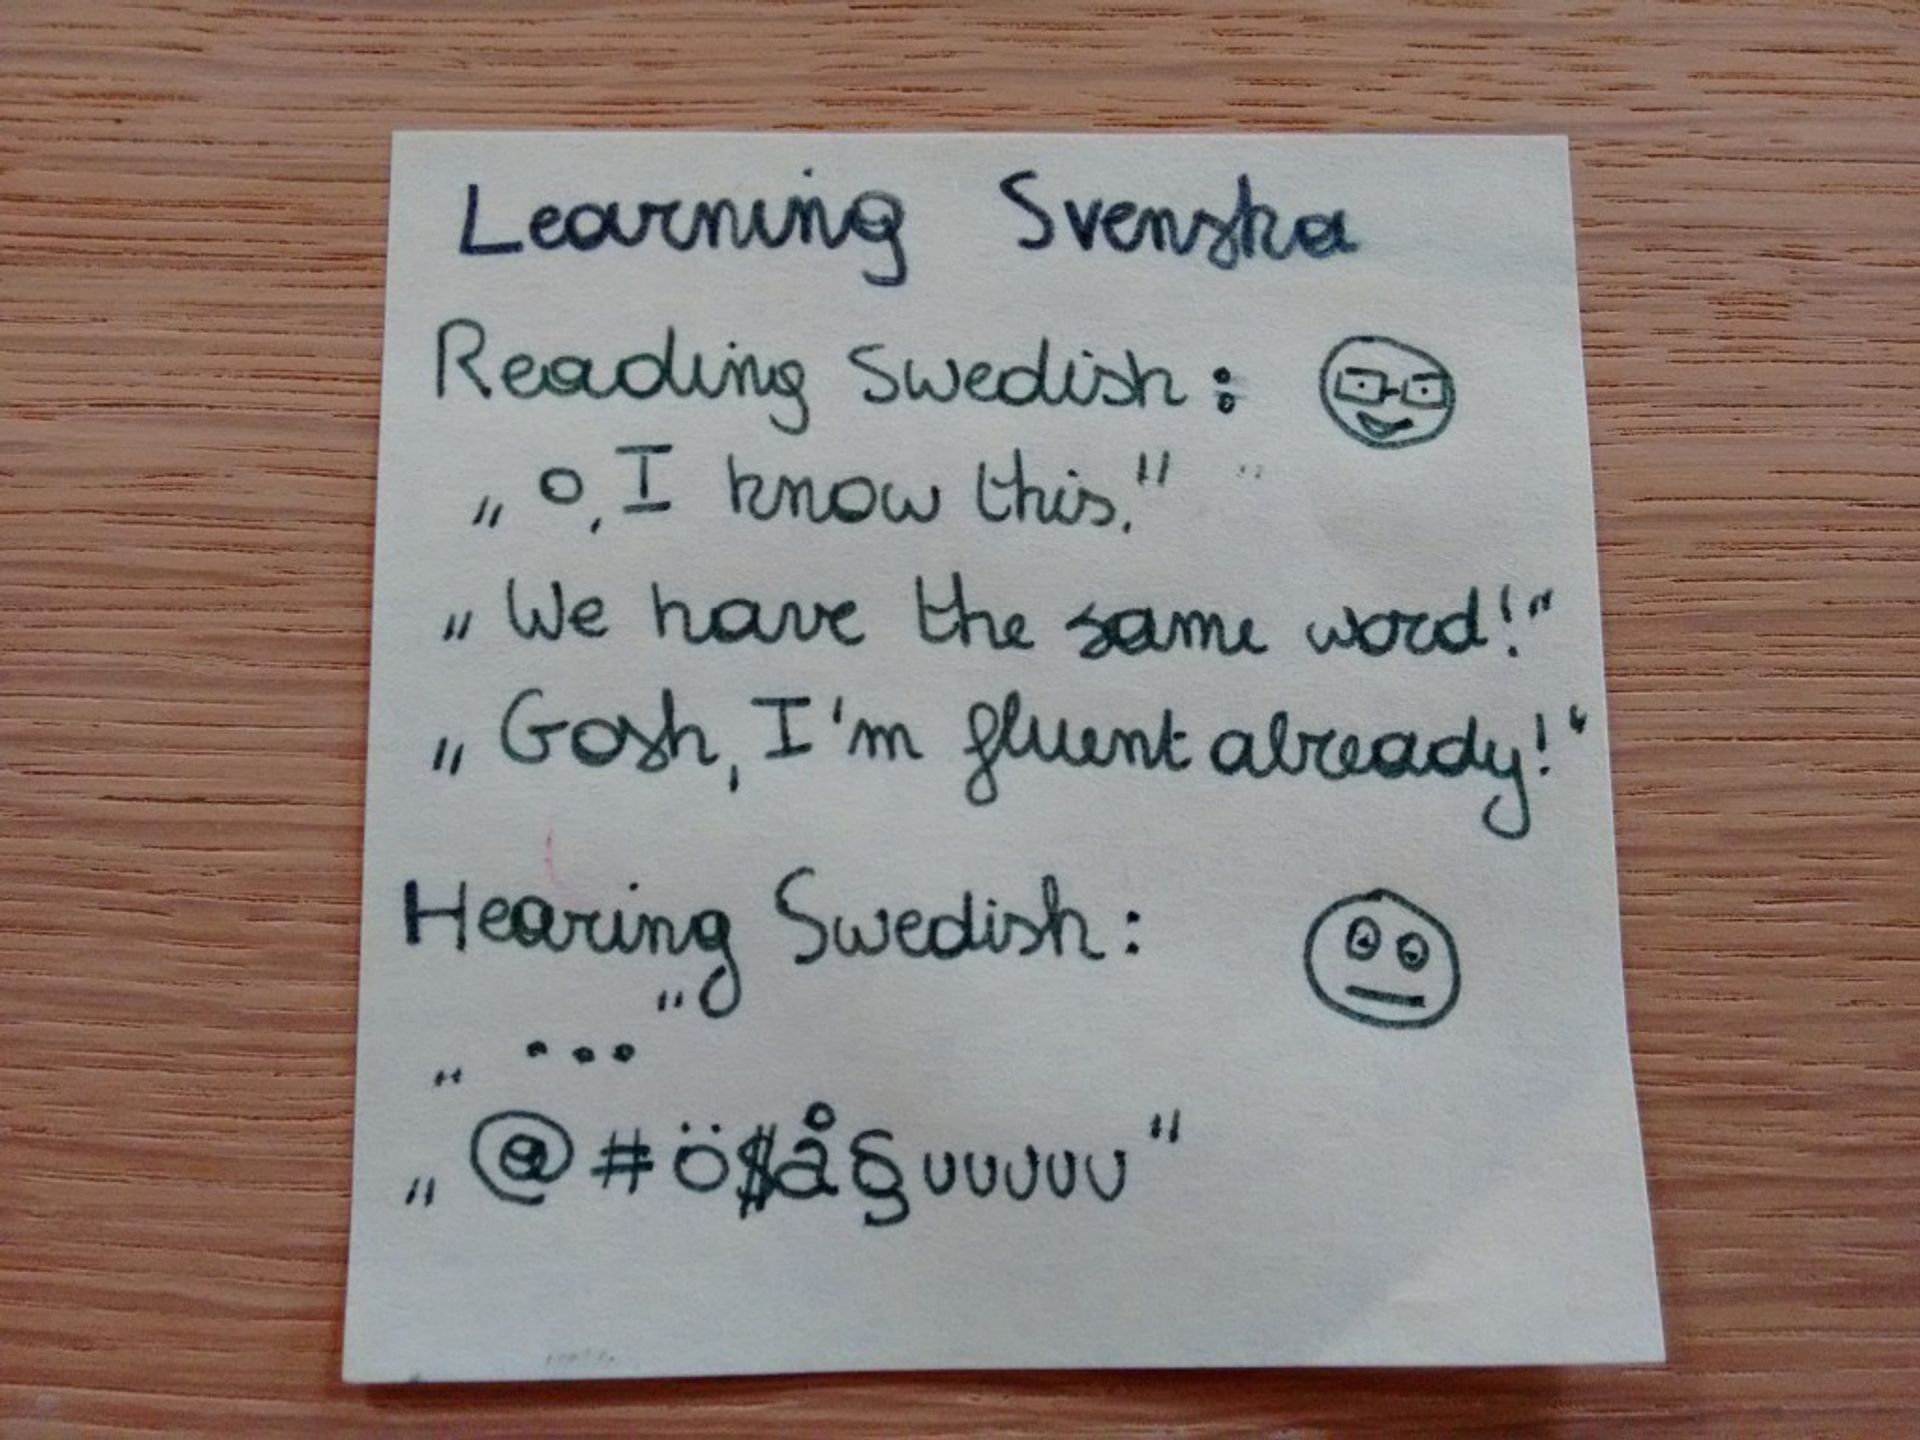 Learning Svenska
Reading Swedish:
„O, I know this."
„We have the same word!"
„Gosh, I'm fluent already!"
Hearing Swedish:
„..."
„@#ö$å§uuuuu"